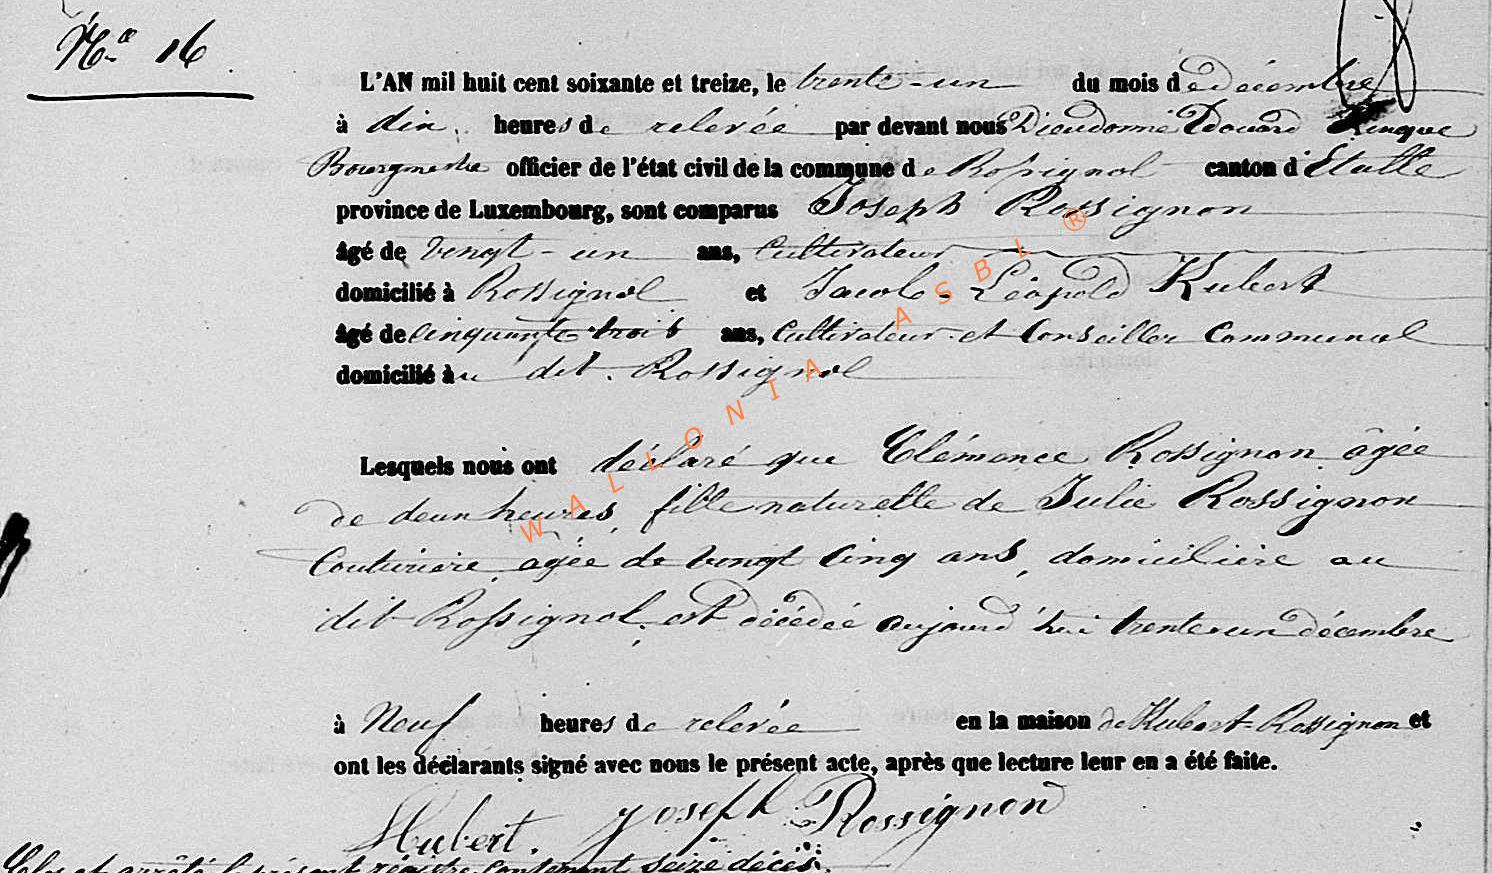 No 16
L'AN mil huit cent soixante et treize, le trente-un du mois de décembre
à dix heures de relevée par devant nous Dieudonné Edouard
Bourgmestre officier de l'état civil de la commune de Rossignol canton d'Etalle
province de Luxembourg, sont comparus Joseph Rossignon
âgé de vingt-un ans, Cultivateur
domicilié à Rossignol et Jacob-Léopold Hubert
âgé de cinquante trois ans, Cultivateur et Conseiller Communal
domicilié au dit Rossignol
Lesquels nous ont déclaré que Clémence Rossignon âgée
de deux heures, fille naturelle de Julie Rossignon
Couturière, agée de vingt cinq ans, domicilière au
dit Rossignol, est décédée aujourd'hui trente un décembre
à Neuf heures de relevée en la maison de Hubert-Rossignon et
ont les déclarants signé avec nous le présent acte, après que lecture leur en a été faite.
Hubert. Joseph Rossignon
Clos et arrêté le présent régistre contenant seize décès.
WALLONIA ASBL ®